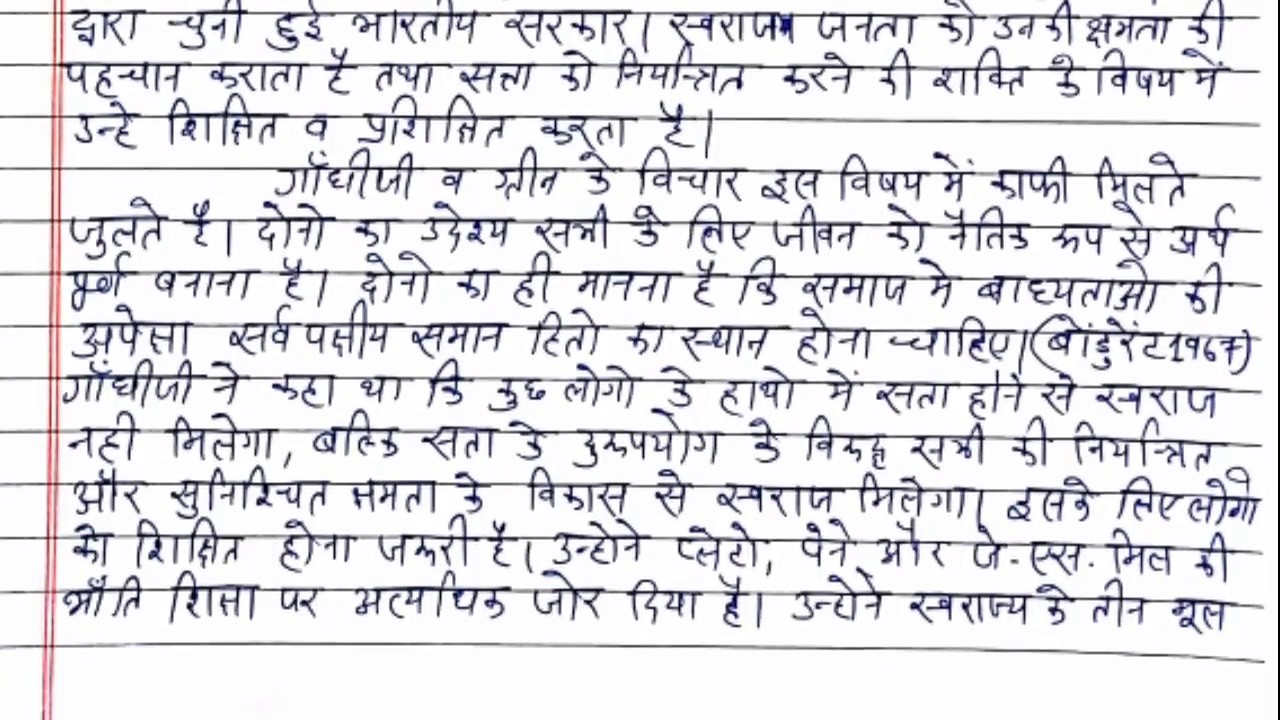 द्वारा चुनी हुई भारतीय सरकार। स्वराज जनता को उनकी क्षमता की
पहचान कराता है तथा सत्ता को नियन्त्रित करने की शक्ति के विषय में
उन्हे शिक्षित व प्रशिक्षित करता है।
गाँधीजी व ग्रीन के विचार इस विषय में काफी मिलते
जुलते है। दोनो का उदेश्य सभी के लिए जीवन को नैतिक रूप से अर्थ
पूर्ण बनाना है। दोनो का ही मानना है कि समाज मे बाध्यताओ की
अपेक्षा सर्वपक्षीय समान हितो का स्थान होना चाहिए। (बोंडुरेंट 1967)
गाँधीजी ने कहा था कि कुछ लोगो के हाथो में सता होने से स्वराज
नही मिलेगा, बल्कि सता के दुरूपयोग के विरूद्ध सभी की नियन्त्रित
और सुनिश्चित क्षमता के विकास से स्वराज मिलेगा। इसके लिए लोगो
को शिक्षित होना जरूरी है। उन्होने प्लेटो, पेने और जे. एस. मिल की
भाँति शिक्षा पर अत्यधिक जोर दिया है। उन्होने स्वराज्य के तीन मूल